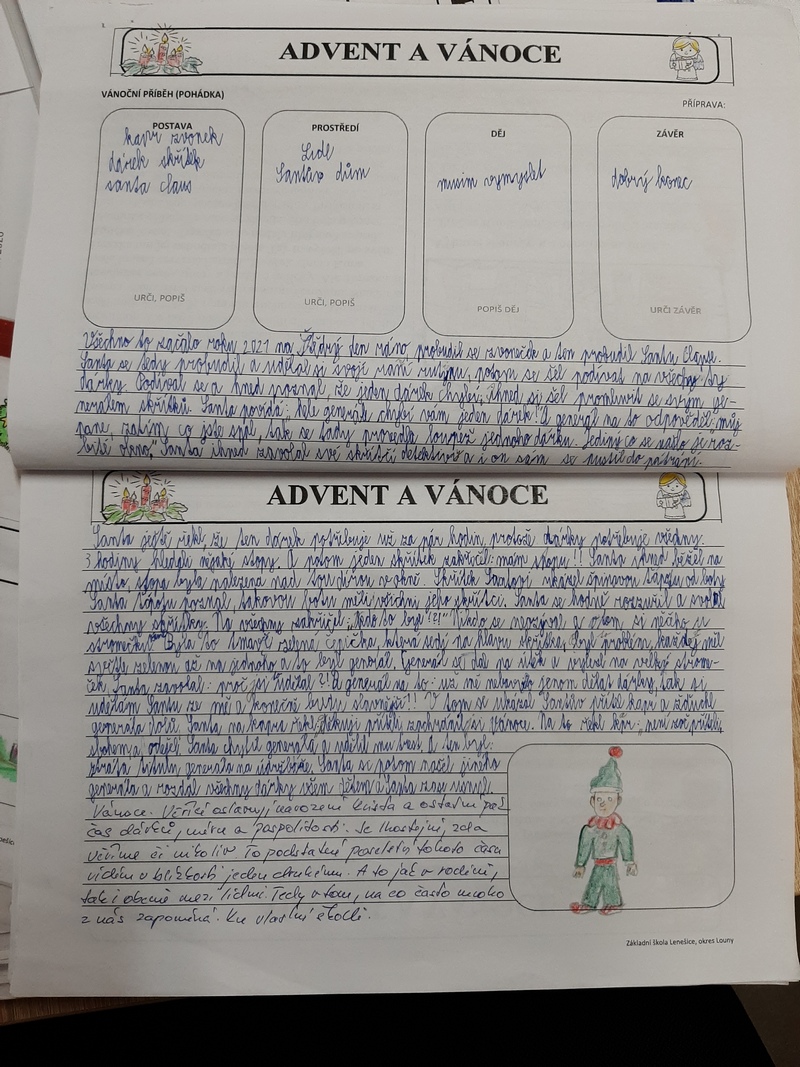 ADVENT A VÁNOCE
VÁNOČNÍ PŘÍBĚH (POHÁDKA)
PŘÍPRAVA:
POSTAVA
kapr zvonek
dárek skřítek
santa claus
URČI, POPIŠ
PROSTŘEDÍ
Lidl
Santův dům
URČI, POPIŠ
DĚJ
musim vymyslet
POPIŠ DĚJ
ZÁVĚR
dobrý konec
URČI ZÁVĚR
Všechno to začalo roku 2021 na Štědrý den ráno, probudil se zvoneček a ten probudil Santu Clause.
Santa se tedy probudil a udělal si svoji ranní rutynu, potom se šel podívat na všechny ty
dárky. Podíval se a hned poznal, že jeden dárek chybí, ihned si šel promluvit se svym ge-
nerálem skřítků. Santa povídá: hele generále chybí vám jeden dárek! A generál na to odpověděl můj
pane, zatím co jste spal, tak se tady provedla loupež jednoho dárku. Jediný co se našlo je roz-
bité okno, Santa ihned zavolal své skřítčí detektivy a i on sám se pustil do pátrání.
ADVENT A VÁNOCE
Santa ještě řekl, že ten dárek potřebuje už za pár hodin, protože dárky potřebuje všechny.
3 hodiny hledali nějaké stopy. A potom jeden skřítek zakřičel: mám stopu!! Santa ihned běžel na
místo, stopa byla nalezena nad tou dírou v okně. Skřítek ukázal špinavou ťápotu od boty
Santa ťápotu poznal, takovou botu měli všichni jeho skřítci. Santa se hodně rozzuřil a svolal
všechny skřítky. Na všechny zakřičel: kdo to byl?!?! Nikdo se neozýval a všiml si něčeho u
stromečku. Byla to tmavě zelená čepička, která sedí na hlavu skřítka, byl problém, každej měl
světle zelenou až na jednoho a to byl generál. Generál se dal na útěk a vylezl na velký strome-
ček. Santa zavolal: proč jsi to udělal?! A generál na to: už mě nebavilo jenom dělat dárky, tak si
udělám Santu ze mě a konečně budu slavnější!! V tom se ukázal Santův přítel kapr a
generála dolů. Santa na kapra řekl: děkuji příteli zachránil si Vánoce. Na to řekl kapr: není zač příteli,
sbohem a odešel. Santa chytil generála a udělil mu trest. A ten byl:
ztráta titulu generála na údržbáře. Santa si potom našel jiného
generála a rozdal všechny dárky všem dětem a Santa zase usnul.
Vánoce. Věřící oslavují narození Krista a ostatní pak
čas dárků, míru a pospolitosti. Je lhostejné, zda
věříme či nikoliv. To podstatné poselství tohoto času
vidím v blízkosti jeden druhému. A to jak v rodině,
tak i obecně mezi lidmi. Tedy v tom, na co často mnoho
z nás zapomíná. Ku vlastní škodě.
Základní škola Lenešice, okres Louny